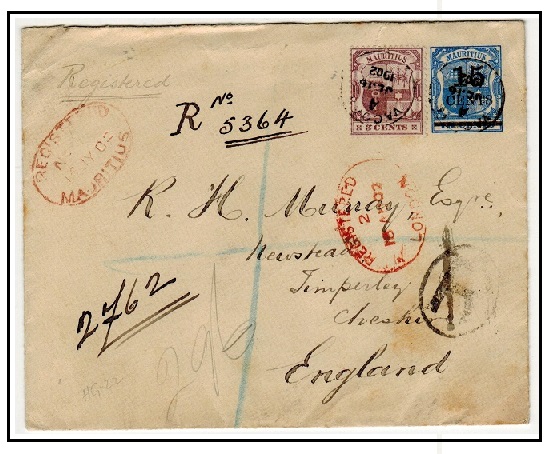 Registered
R No 5364
MAURITIUS
8 CENTS
MAURITIUS
15
CENTS
REGISTERED
MAURITIUS
REGISTERED
LONDON
R. H. Murray, Esqre.
Newstead
Timperley
Cheshire
England
2762
296